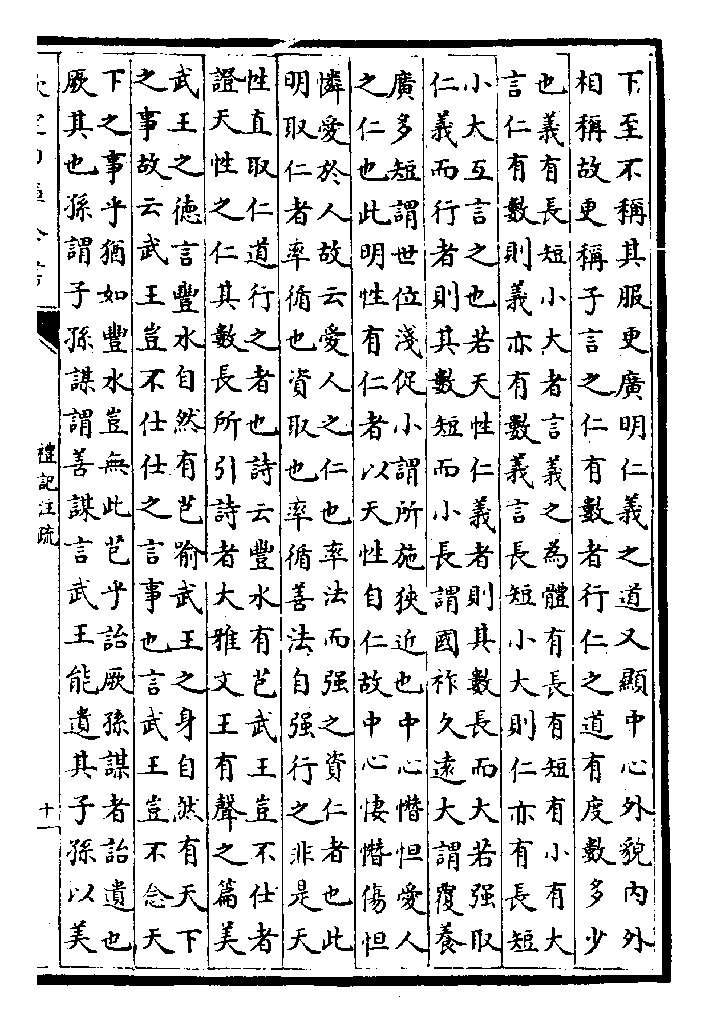 下至不稱其服更廣明仁義之道又顯中心外貌內外
相稱故更稱子言之仁有數者行仁之道有度數多少
也義有長短小大者言義之為體有長有短有小有大
言仁有數則義亦有數義言長短小大則仁亦有長短
小大互言之也若天性仁義者則其數長而大若强取
仁義而行者則其數短而小長謂國祚久遠大謂覆養
廣多短謂世位淺促小謂所施狹近也中心憯怛愛人
之仁也此明性有仁者以天性自仁故中心悽憯傷怛
憐愛於人故云愛人之仁也率法而强之資仁者也此
明取仁者率循也資取也率循善法自强行之非是天
性直取仁道行之者也詩云豐水有芑武王豈不仕者
證天性之仁其數長所引詩者大雅文王有聲之篇美
武王之德言豐水自然有芑喻武王之身自然有天下
之事故云武王豈不仕仕之言事也言武王豈不念天
下之事乎猶如豐水豈無此芑乎詒厥孫謀者詒遺也
厥其也孫謂子孫謀謂善謀言武王能遺其子孫以美
禮記注疏
十一